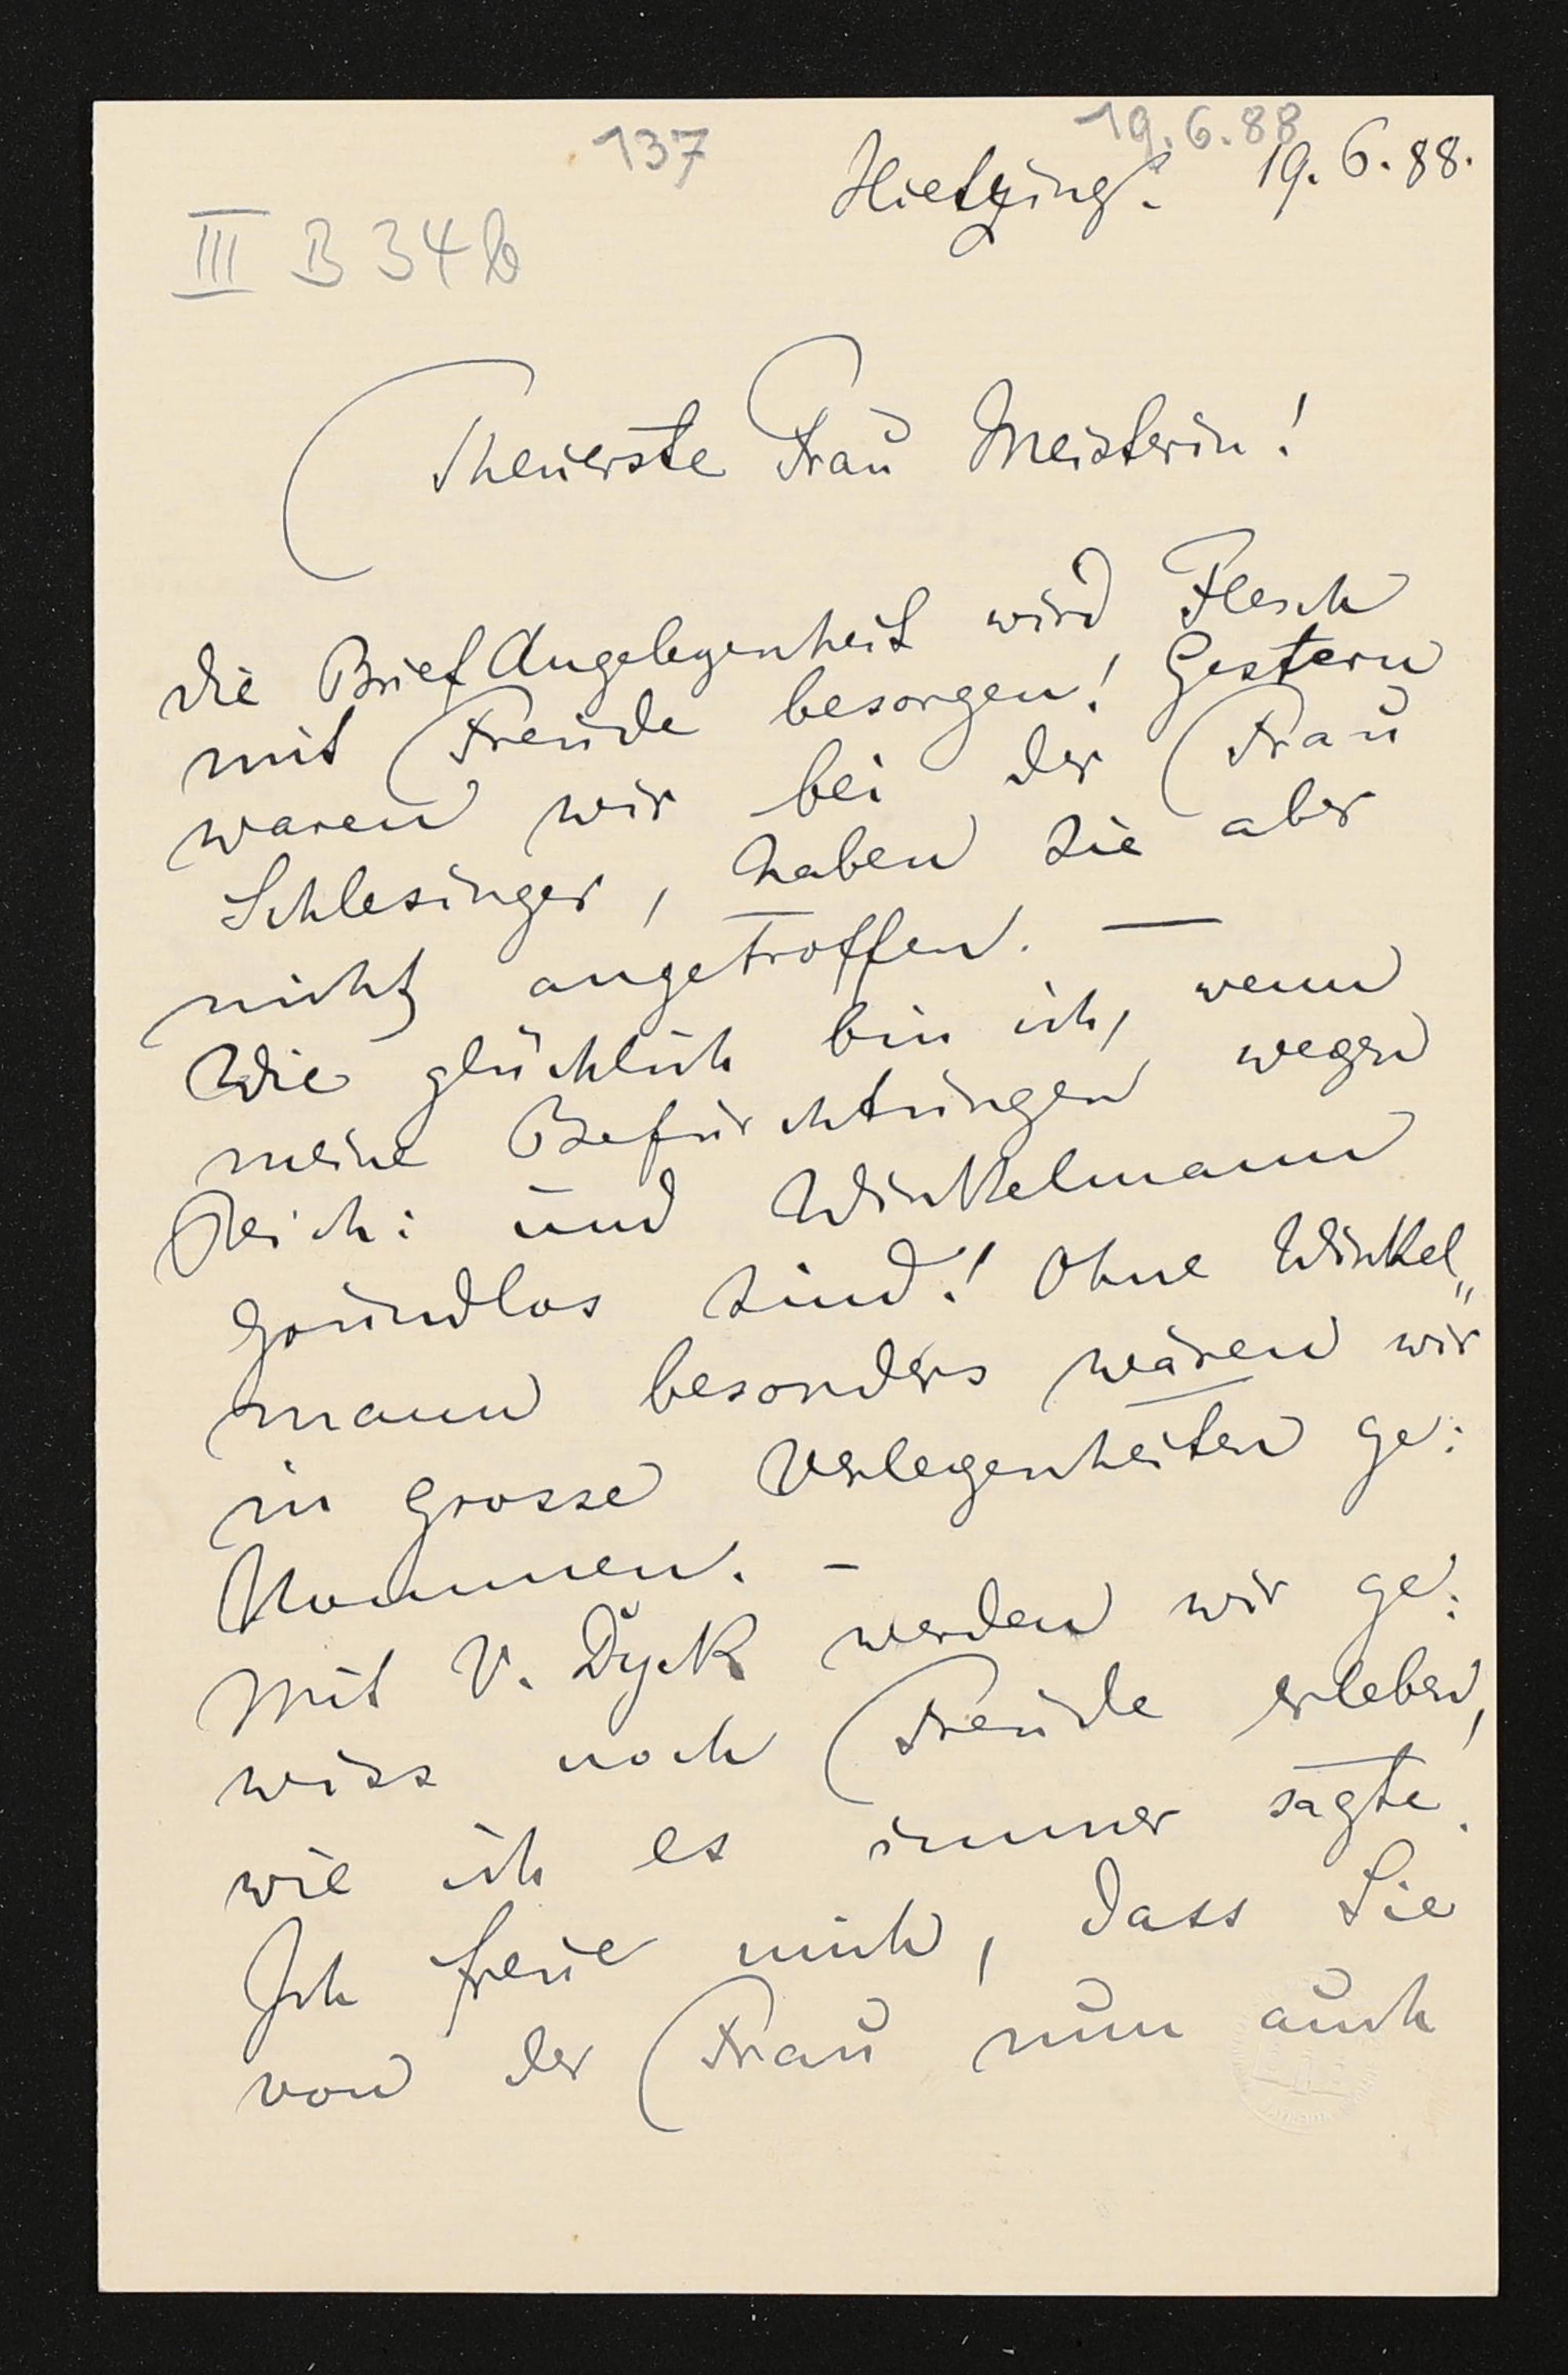 137
19.6.88
Hietzing. 19.6.88.
III B 34 b
Theuerste Frau Meisterin!
die Brief Angelegenheit wird Flesch
mit Freude besorgen! Gestern
waren wir bei der Frau
Schlesinger, haben sie aber
nicht angetroffen. —
Wie glücklich bin ich, wenn
meine Befürchtungen wegen
Reich: und Winkelmann
grundlos sind! Ohne Winkel„
mann besonders wären wir
in grosse Verlegenheiten ge:
kommen. –
Mit V. Dyck werden wir ge:
wiss noch Freude erleben,
wie ich es immer sagte.
Ich freue mich, dass Sie
von der Frau nun auch